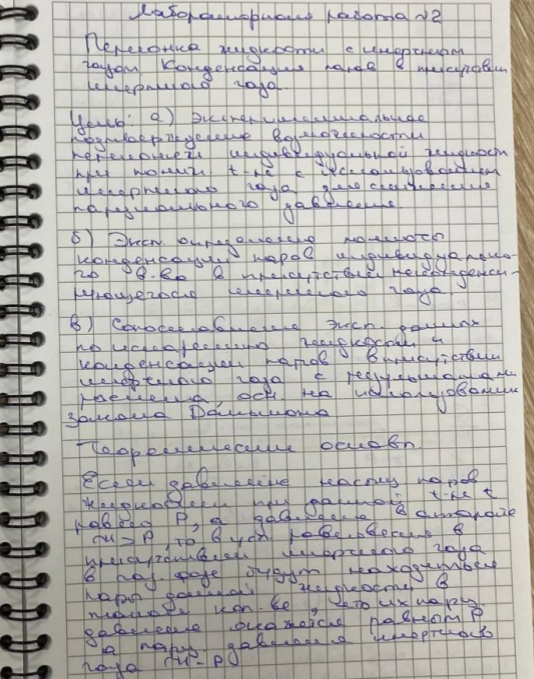 Лабораторная работа №2
Перегонка жидкости с инертным
газом Конденсация паров в присутствии
инертного газа
Цель: а) Экспериментальное
подтверждение возможности
перегонки индивидуальной жидкости
при пониж t-ре с использованием
инертного газа для снижения
парциального давления
б) Эксп определение полноты
конденсации паров индивидуально-
го в-ва в присутствии неконденси-
рующегося инертного газа.
в) Сопоставление эксп. данных
по испарению жидкости и
конденсации паров в присутствии
инертного газа с результатами
расчета, осн. на использовании
закона Дальтона
Теоретические основы.
Если давление насыщ паров
жидкости при данной t-ре t
равно P, а давление в аппарате
π > P, то в усл равновесия в
присутствии инертного газа
в газ. фазе будут находиться
пары данной жидкости в
таком кол-ве, что их парц.
давление окажется равным P
а парц давление инертного
газа π - P